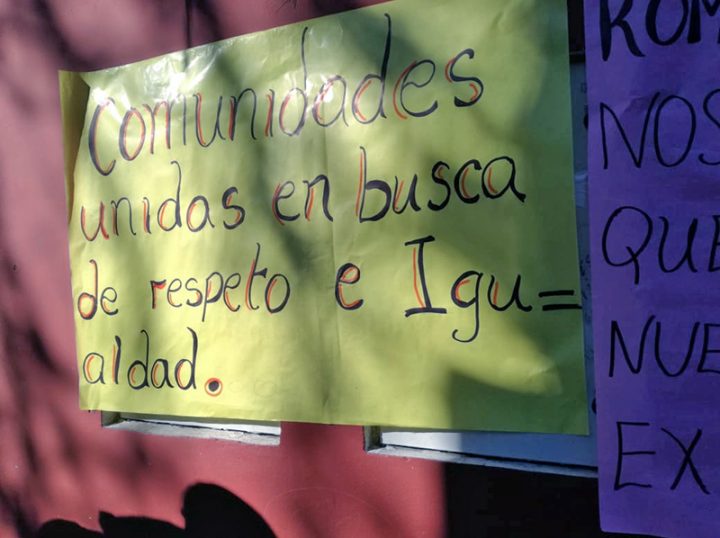 Comunidades
unidas en busca
de respeto e Igu=
aldad.
NUE
EX